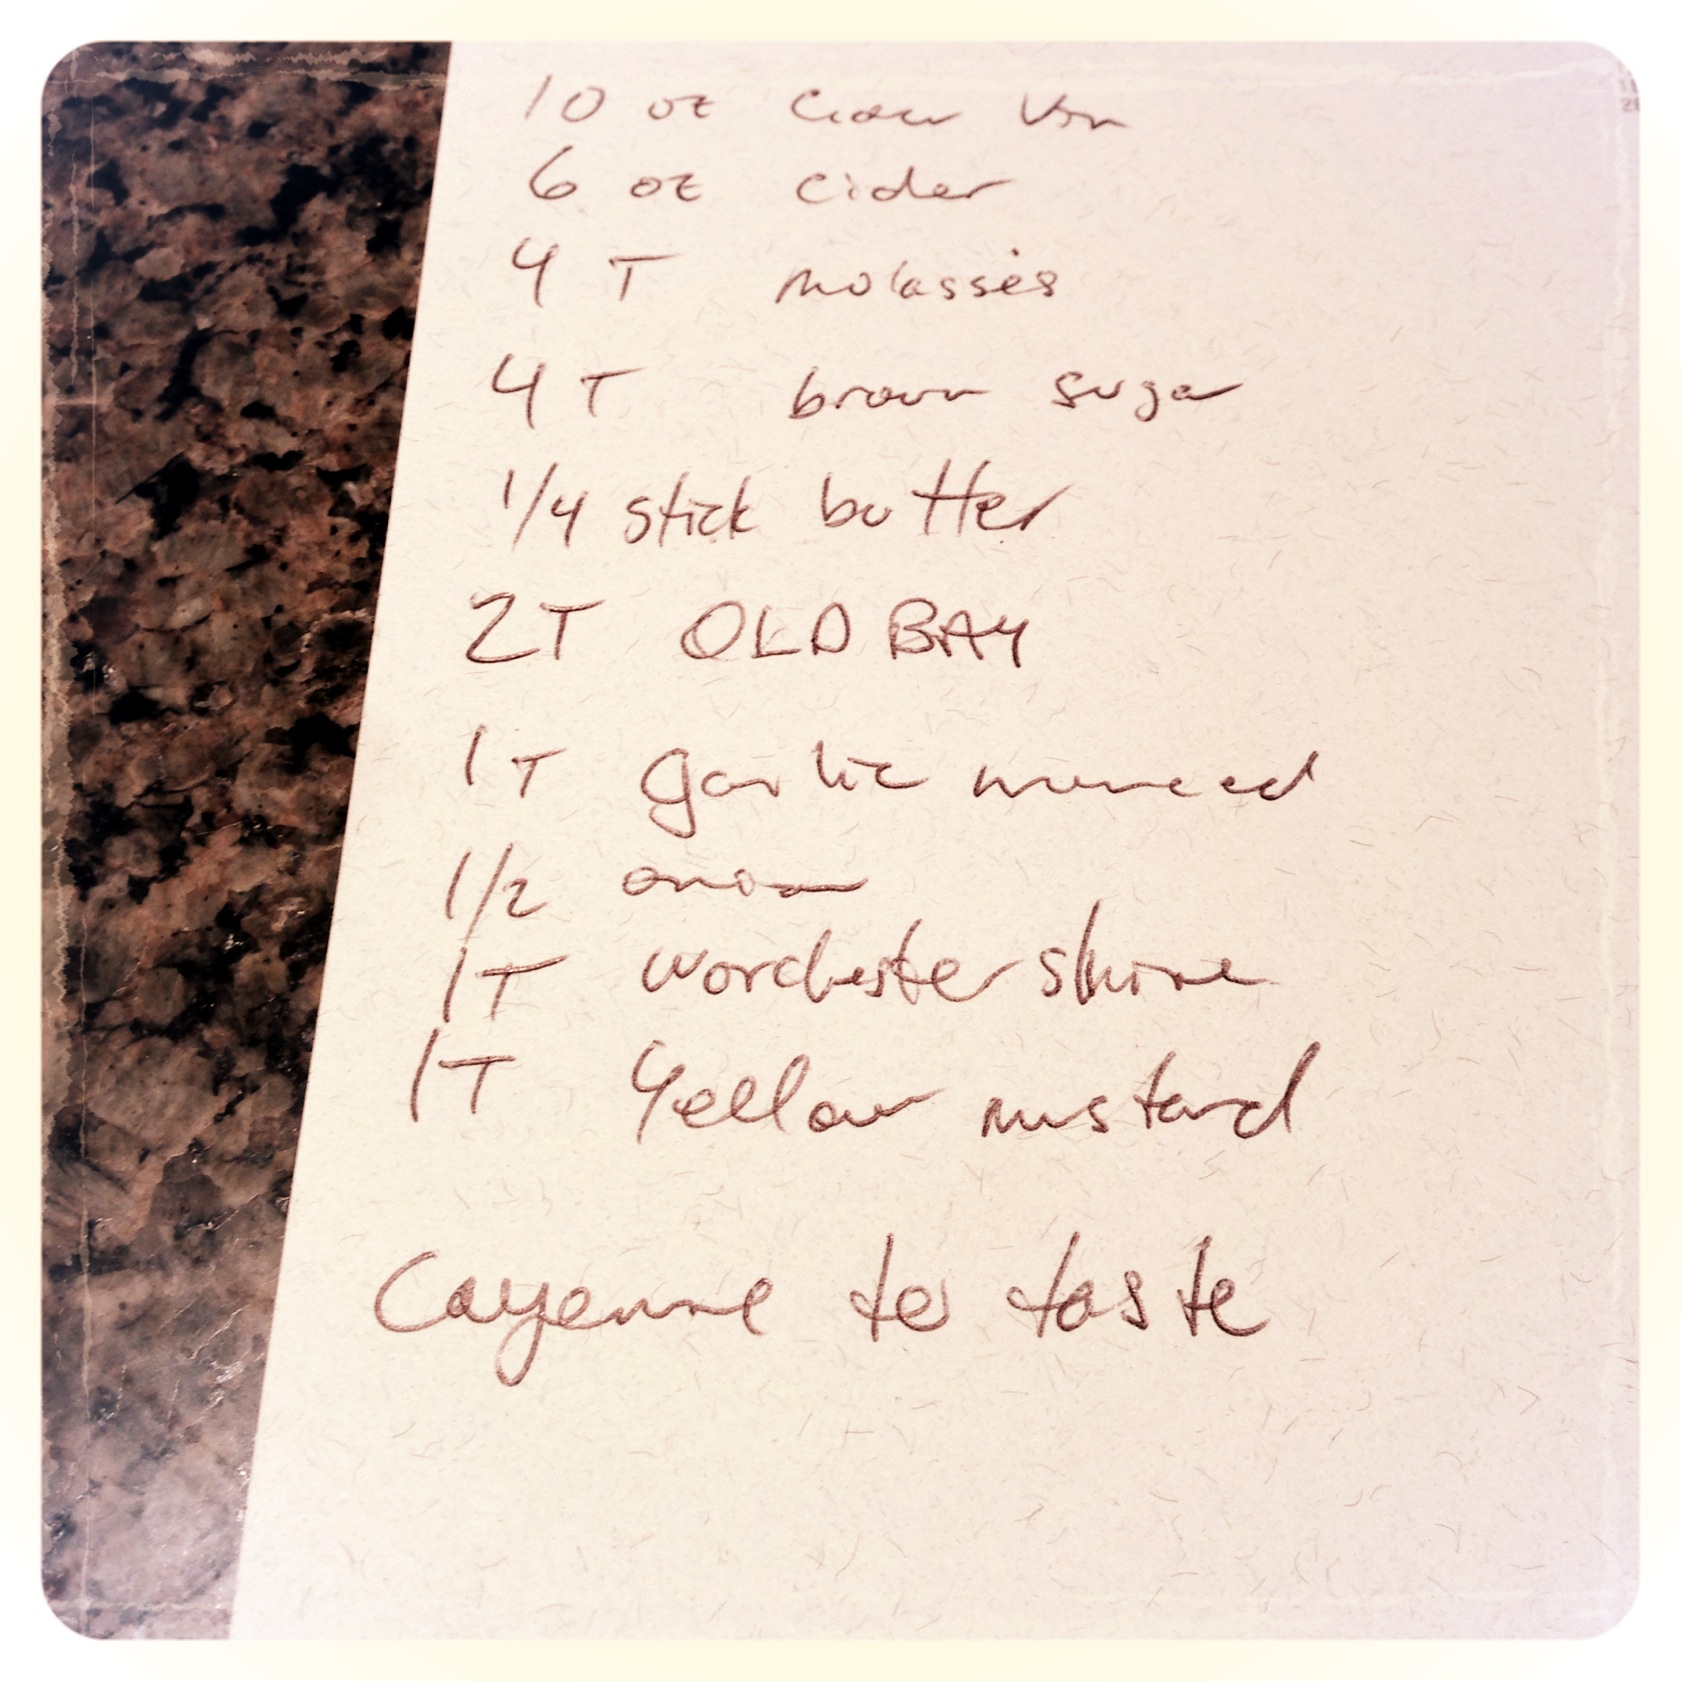 10 oz Cider Vin
6 oz cider
4 T molasses
4 T brown sugar
1/4 stick butter
2T OLD BAY
1T garlic minced
1/2 onion
1T worchestershire
1T Yellow mustard
Cayenne to taste